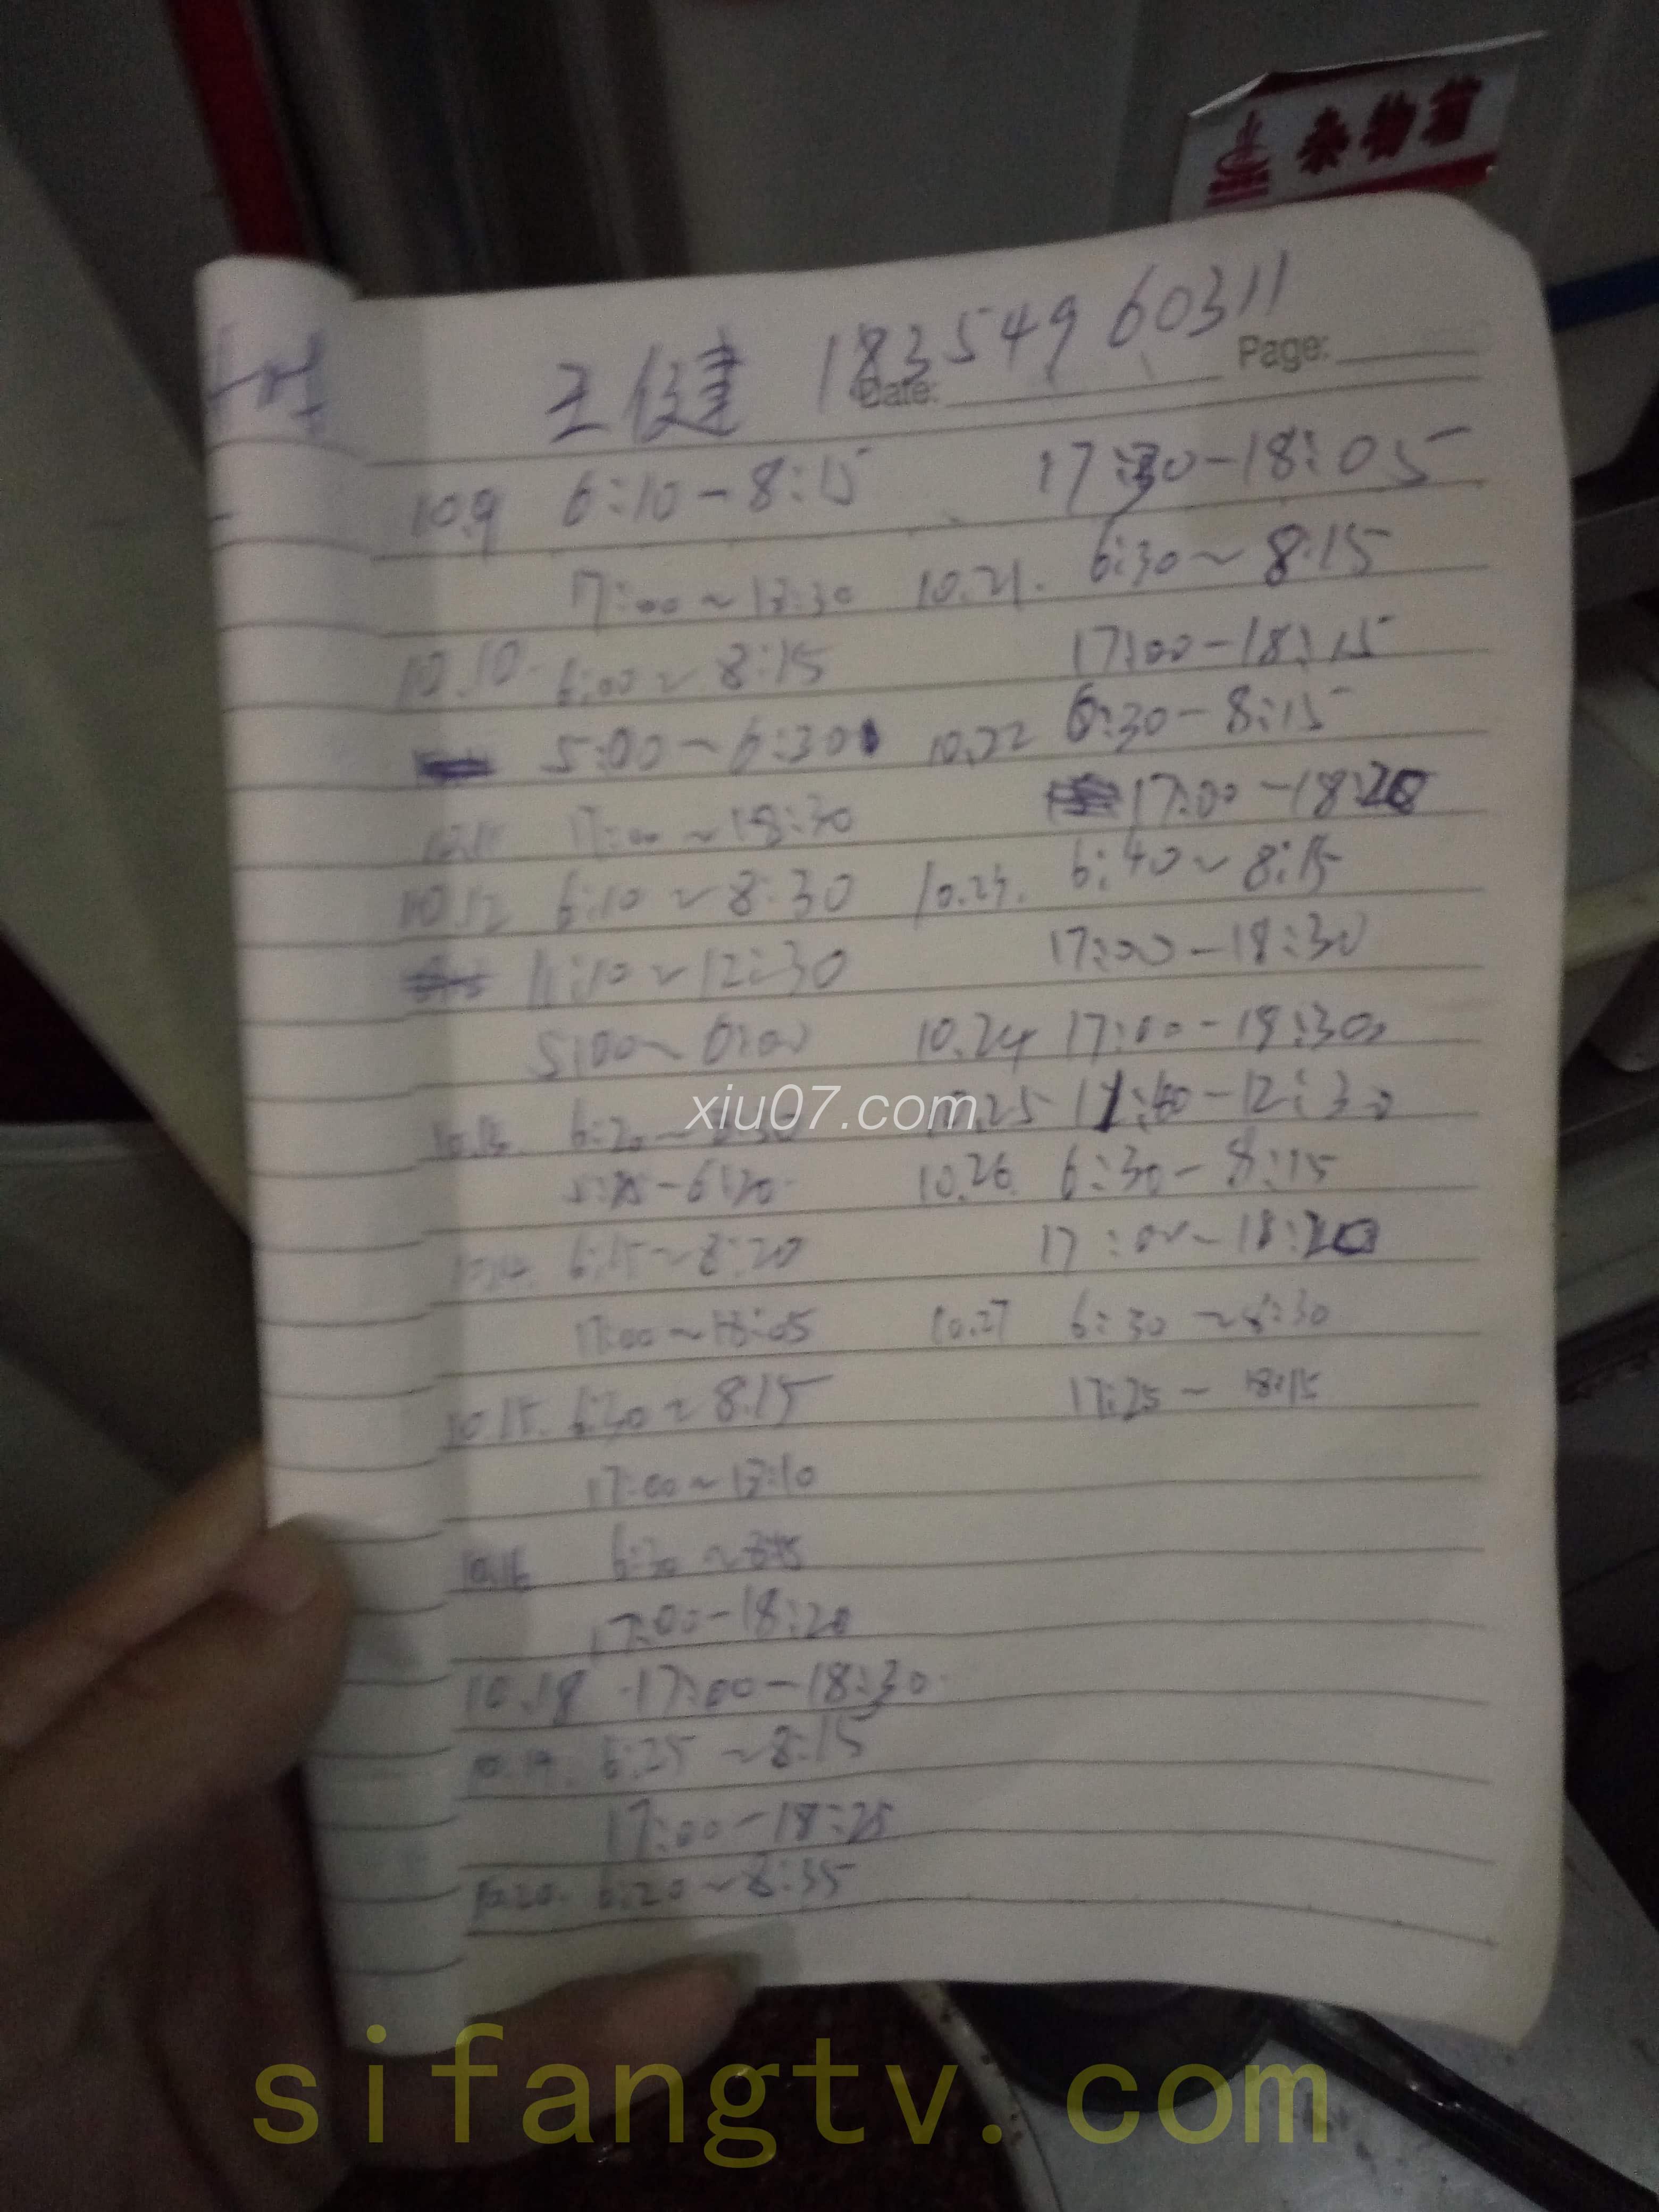 杂物箱
王健 18354960311
Date: Page:
10.9 6:10-8:15
17:00~18:30
10.10 6:00~8:15
5:00-6:30
10.11 17:00~18:30
10.12 6:10~8:30
11:10~12:30
5:00~6:00
6:20-
10.14. 6:15~8:20
17:00~18:05
10.15. 6:30~8:15
17:00~18:10
10.16 6:30~8:15
17:00-18:20
10.18 17:00-18:30
10.19. 6:25~8:15
17:00-18:25
10.20. 6:20~8:35
17:30-18:05
10.21. 6:30~8:15
17:00-18:15
10.22 6:30-8:15
17:00-18:20
6:40~8:15
17:00-18:30
10.24 17:00-18:30
10.25 -12:30
10.26. 6:30-8:15
17:00-18:20
10.27 6:30~8:30
17:25~18:15
xiu07.com
sifangtv.com